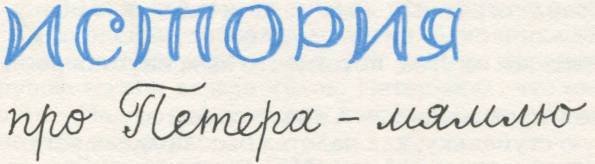 ИСТОРИЯ
про Петера – мямлю